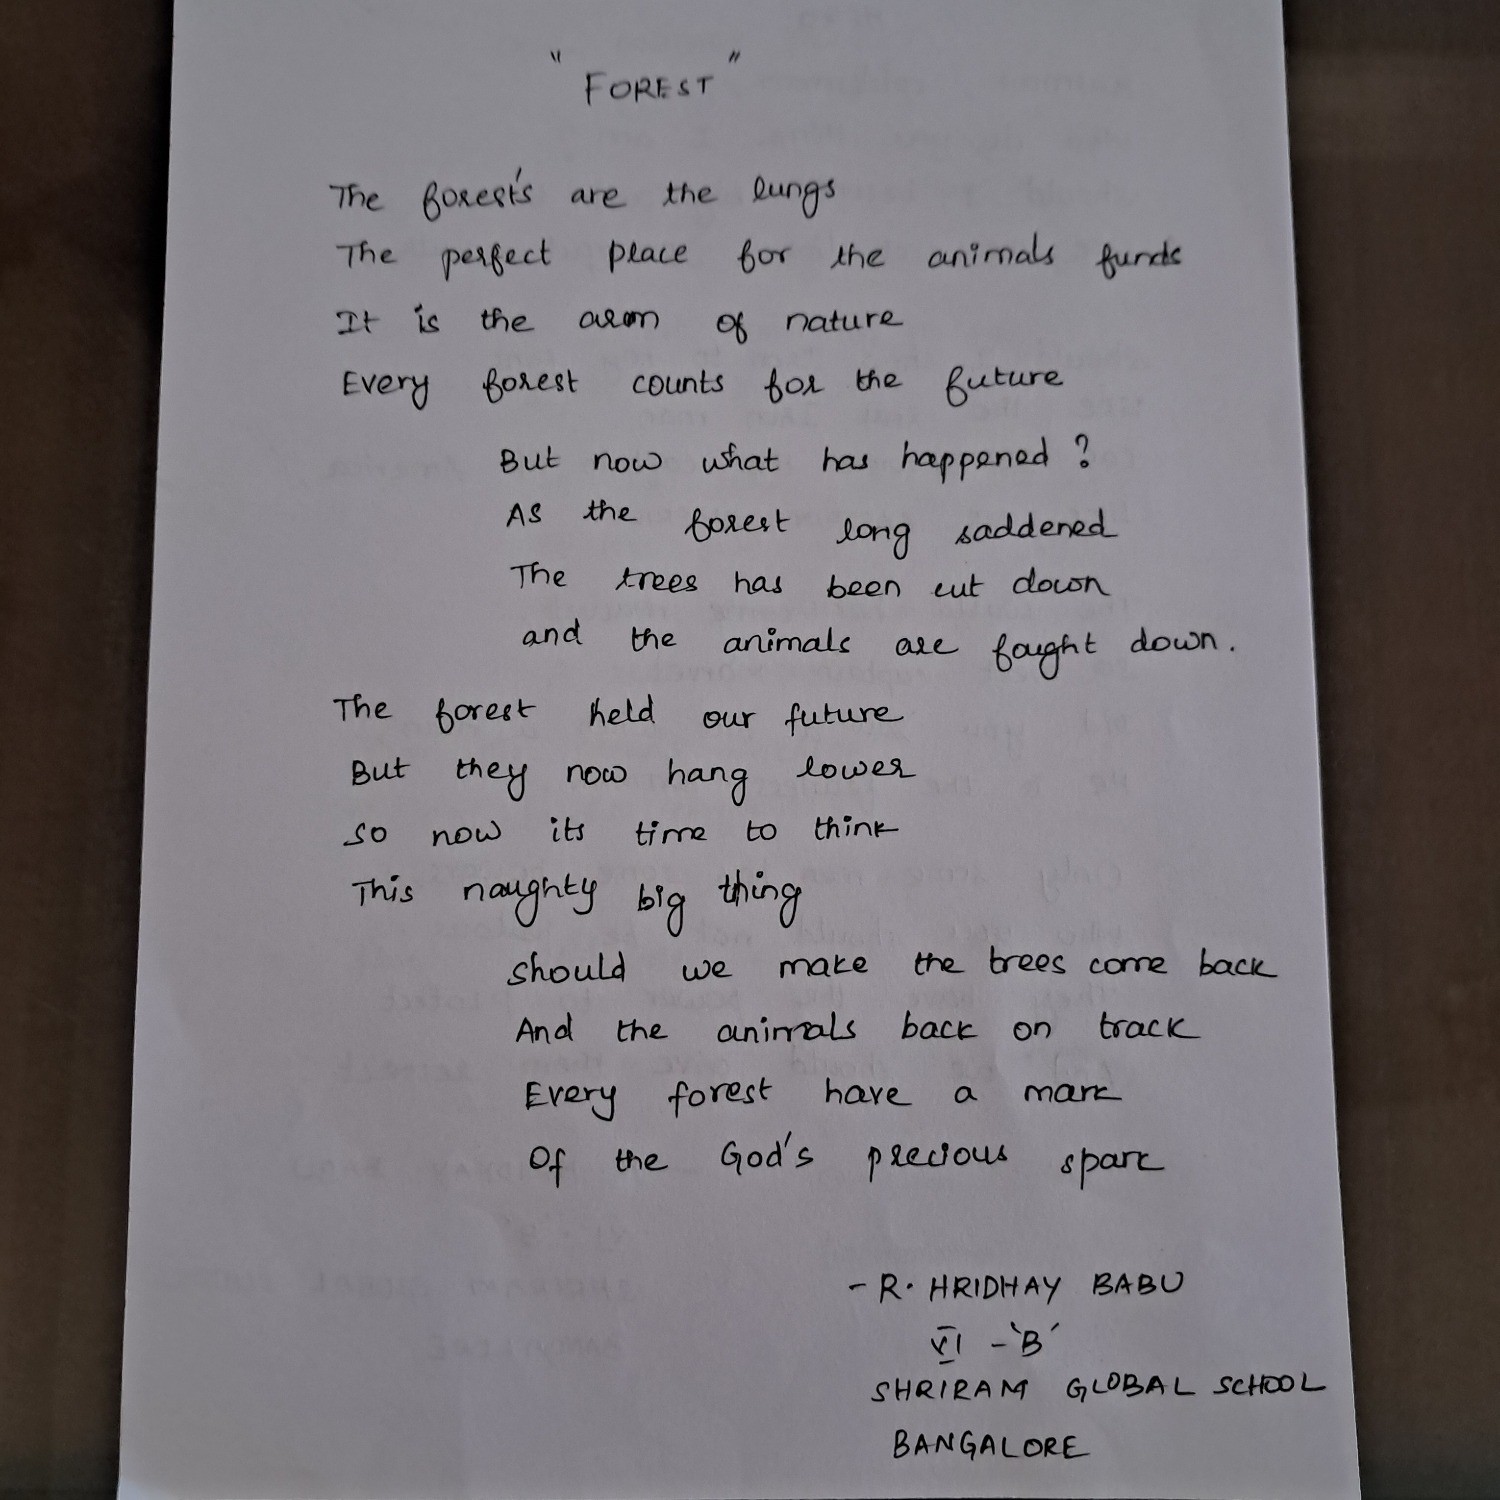 "FOREST"
The forest's are the lungs
The perfect place for the animals funds
It is the arm of nature
Every forest counts for the future
But now what has happened ?
As the forest long saddened
The trees has been cut down
and the animals are fought down.
The forest held our future
But they now hang lower
so now its time to think
This naughty big thing
should we make the trees come back
And the animals back on track
Every forest have a mark
Of the God's precious spark
- R. HRIDHAY BABU
VI - 'B'
SHRIRAM GLOBAL SCHOOL
BANGALORE